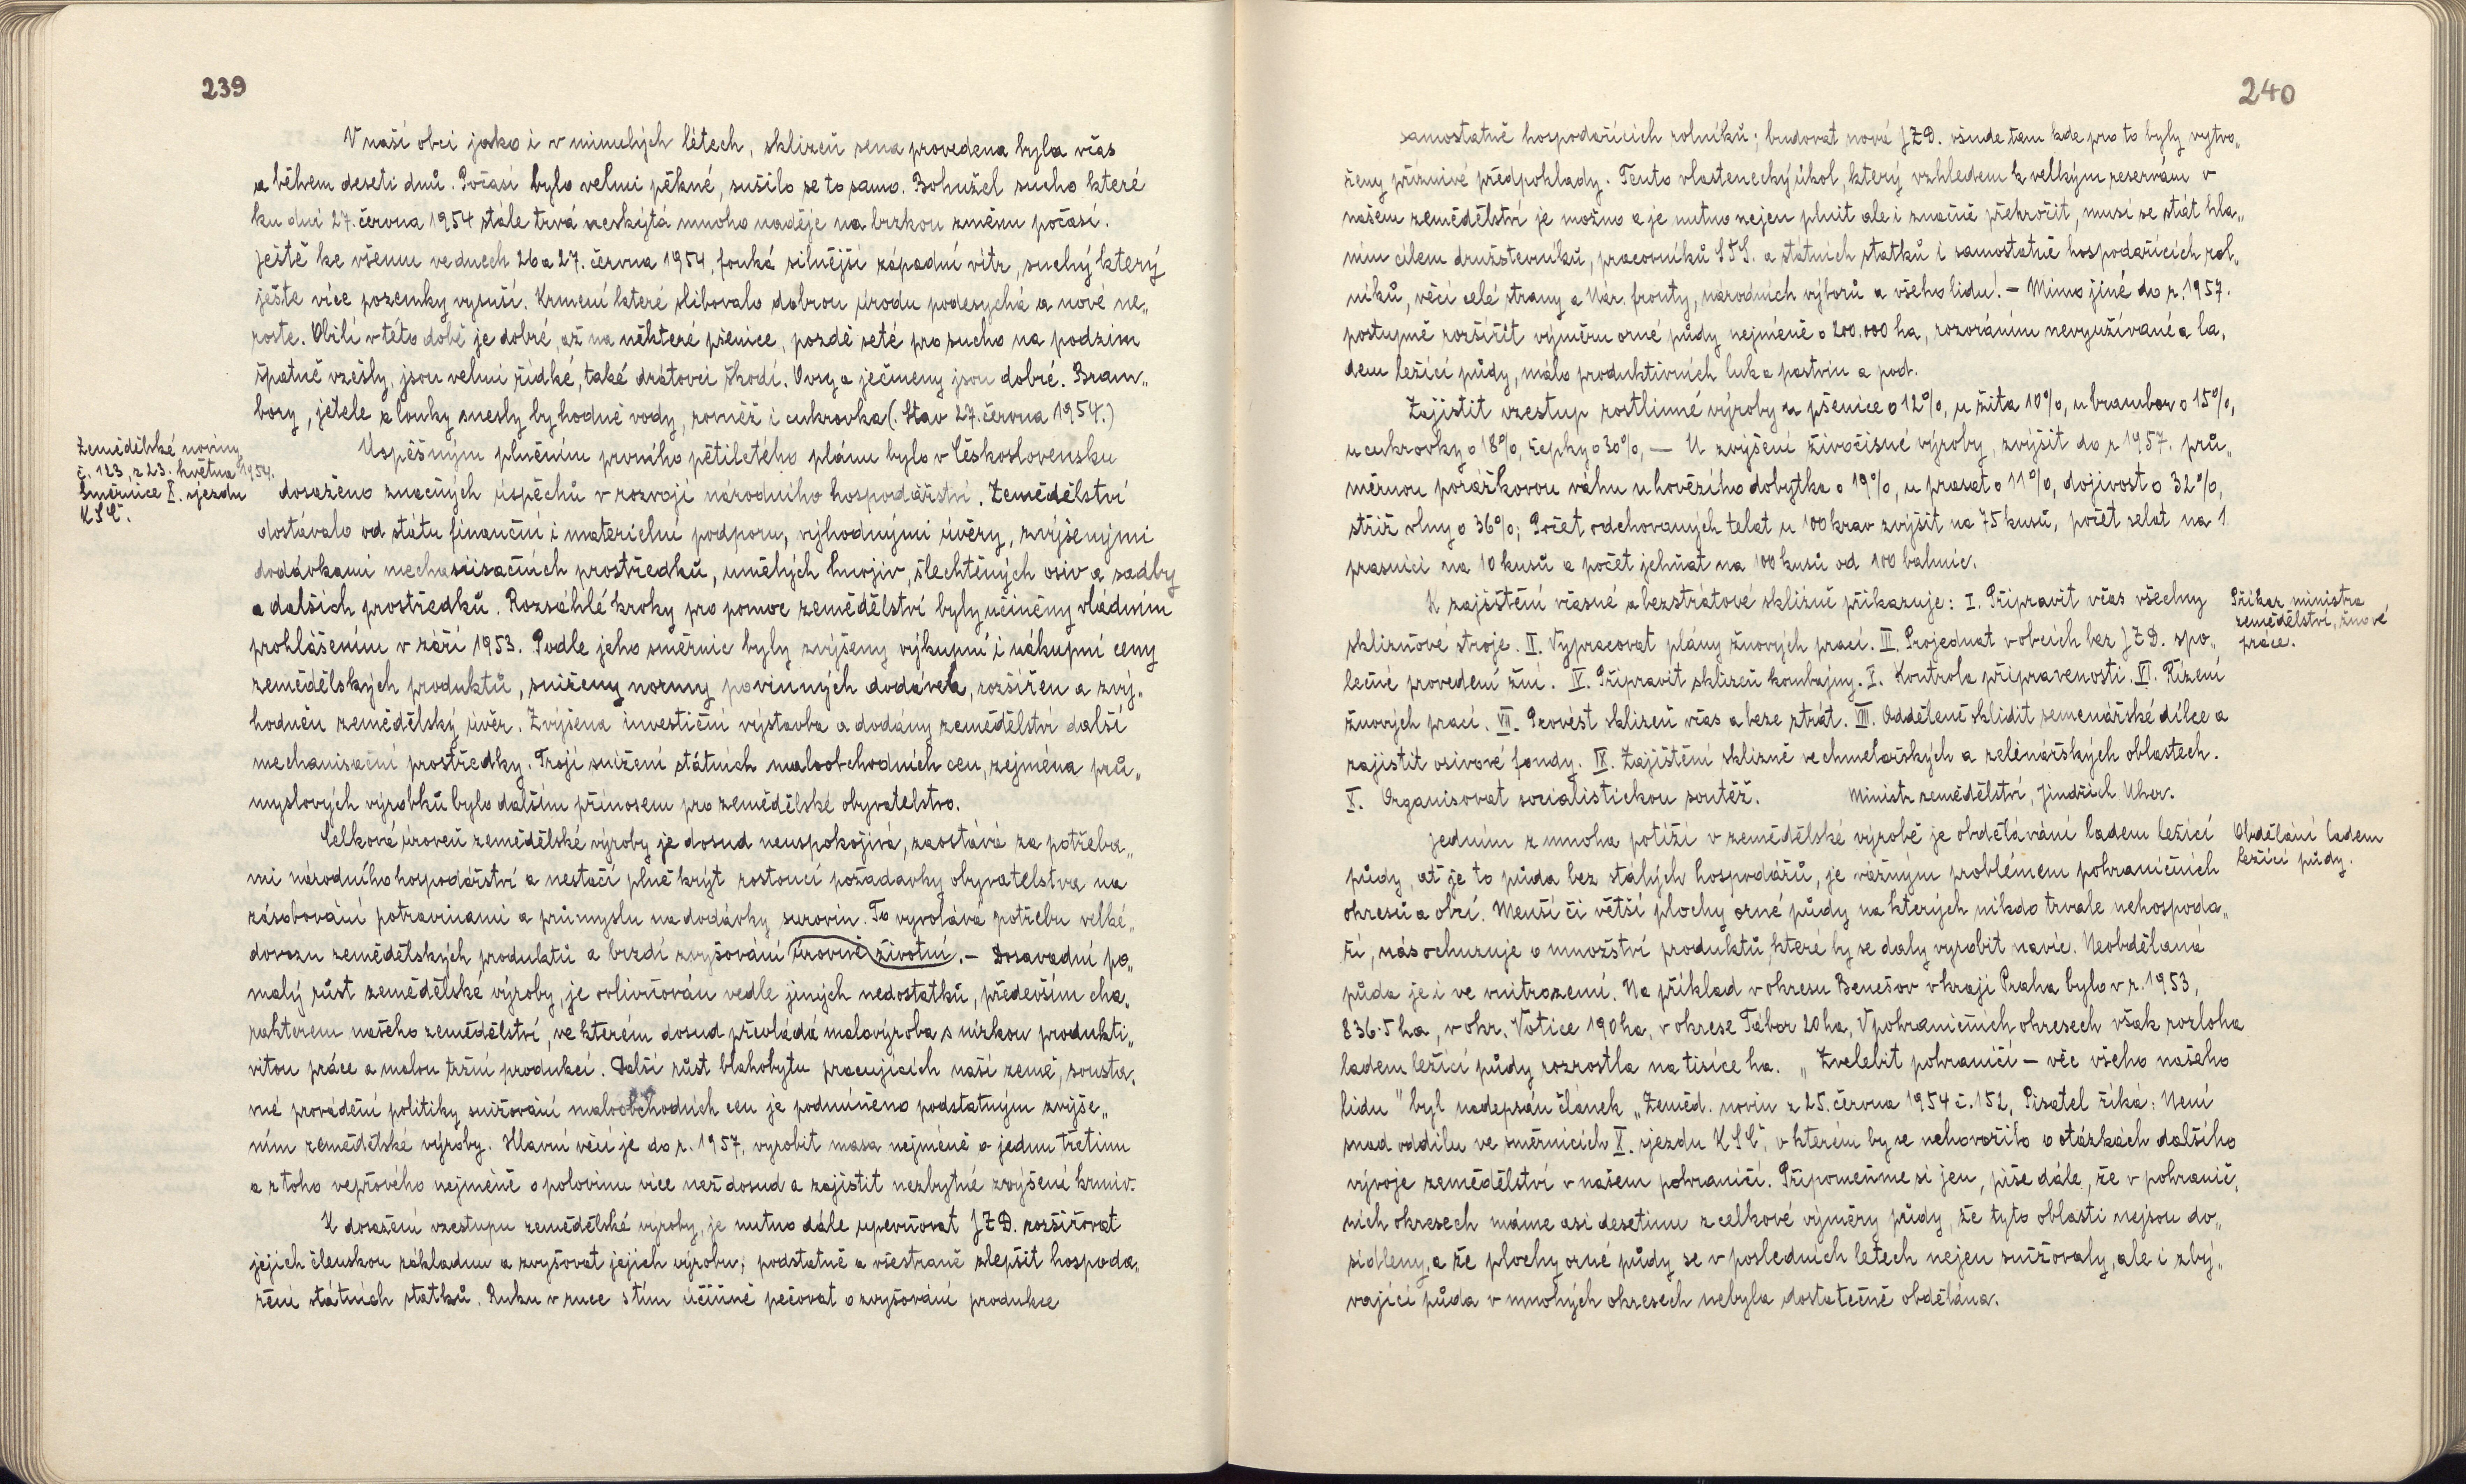 239
V naší obci jako i v minulých létech, sklizeň sena provedena byla včas
a během deseti dnů. Počasí bylo velmi pěkné, sušilo se to samo. Bohužel sucho které
ku dni 27. června 1954 stále trvá neskýtá mnoho naděje na brzkou změnu počasí.
ještě ke všemu ve dnech 26 a 27. června 1954, fouká silnější západní vítr, suchý který
ješte více pozemky vysuší. Krmení které slibovalo dobrou úrodu podesychá a nové ne„
roste. Obilí v této době je dobré, až na některé pšenice, pozdě seté pro sucho na podzim
špatně vzešly, jsou velmi řídké, také drátovci škodí. Ovsy a ječmeny jsou dobré. Bram„
bory, jetele a louky snesly by hodně vody, rovněž i cukrovka (. Stav 27. června 1954.)
Zemědělské noviny
č. 123, z 23. května 1954.
Směrnice X. sjezdu
KSČ.
Úspěšným plněním prvního pětiletého plánu bylo v Československu
dosaženo značných úspěchů v rozvoji národního hospodářství. Zemědělství
dostávalo od státu finanční i materielní podporu, výhodnými úvěry, zvýšenými
dodávkami mechanisačních prostředků, umělých hnojiv, šlechtěných osiv a sadby
a dalších prostředků. Rozsáhlé kroky pro pomoc zemědělství byly učiněny vládním
prohlášením v září 1953. Podle jeho směrnic byly zvýšeny výkupní i nákupní ceny
zemědělských produktů, sníženy normy povinných dodávek, rozšířen a zvý„
hodněn zemědělský úvěr. Zvýšena investiční výstavba a dodány zemědělství další
mechanisační prostředky. Trojí snížení státních maloobchodních cen, zejména prů„
myslových výrobků bylo dalším přínosem pro zemědělské obyvatelstvo.
Celková úroveň zemědělské výroby je dosud neuspokojivá, zaostává za potřeba„
mi národního hospodářství a nestačí plně krýt rostoucí požadavky obyvatelstva na
zásobování potravinami a průmyslu na dodávky surovin. To vyvolává potřebu velké„
dovozu zemědělských produktů a brzdí zvyšování úrovně životní. – Dosavadní po„
malý růst zemědělské výroby, je ovlivňován vedle jiných nedostatků, především cha„
rakterem našeho zemědělství, ve kterém dosud převládá malovýroba s nízkou produkti„
vitou práce a malou tržní produkcí. Další růst blahobytu pracujících naší země, sousta„
vné provádění politiky snižování maloobchodních cen je podmíněno podstatným zvýše„
ním zemědělské výroby. Hlavní věcí je do r. 1957, vyrobit masa nejméně o jednu třetinu
a z toho vepřového nejméně o polovinu více než dosud a zajistit nezbytné zvýšení krmiv.
K dosažení vzestupu zemědělské výroby, je nutno dále upevňovat JZD. rozšiřovat
jejich členskou základnu a zvyšovat jejich výrobu; podstatně a všestraně zlepšit hospoda„
ření státních statků. Ruku v ruce s tím účinně pečovat o zvyšování produkce
240
samostatně hospodařících rolníků; budovat nové JZD. všude tam kde pro to byly vytvo„
řeny příznivé předpoklady. Tento vlastenecký úkol, který vzhledem k velkým reservám v
našem zemědělství je možno a je nutno nejen plnit ale i značně překročit, musí se stát hla„
vním cílem družstevníků, pracovníků STS. a státních statků i samostatně hospodařících rol„
níků, věcí celé strany a Nár. fronty, národních výborů a všeho lidu. – Mimo jiné do r. 1957.
postupně rozšířit výměru orné půdy nejméně o 200.000 ha, rozoráním nevyužívané a la„
dem ležící půdy, málo produktivních luk a pastvin a pod.
Zajistit vzestup rostlinné výroby u pšenice o 12%, u žita 10%, u brambor o 15%,
u cukrovky o 18%, řepky o 30%, — U zvýšení živočišné výroby, zvýšit do r 1957. prů„
měrnou porážkovou váhu u hovězího dobytka o 19%, u prasat o 11%, dojivost o 32%,
stříž vlny o 36%; Počet odchovaných telat u 100 krav zvýšit na 75 kusů, počet selat na 1
prasnici na 10 kusů a počet jehňat na 100 kusů od 100 bahnic.
K zajištění včasné a bezstrátové sklizně přikazuje: I. Připravit včas všechny
Příkaz ministra
zemědělství, žňové
práce.
sklizňové stroje. II. Vypracovat plány žňových prací. III. Projednat v obcích bez JZD. spo„
lečné provedení žní. IV. Připravit sklizeň kombajny. V. Kontrola připravenosti. VI. Řízení
žňových prací. VII. Provést sklizeň včas a beze ztrát. VIII. Odděleně sklidit semenářské dílce a
zajistit osivové fondy. IX. Zajištění sklizně ve chmelařských a zelinářských oblastech.
X. Organisovat socialistickou soutěž. Ministr zemědělství, Jindřich Uher.
Jedním z mnoha potíží v zemědělské výrobě je obdělávání ladem ležící
Obdělání ladem
ležící půdy.
půdy, ať je to půda bez stálých hospodářů, je vážným problémem pohraničních
okresů a obcí. Menší či větší plochy orné půdy na kterých nikdo trvale nehospoda„
ří, nás ochuzuje o množství produktů, které by se daly vyrobit navíc. Neobdělaná
půda je i ve vnitrozemí. Na příklad v okresu Benešov v kraji Praha bylo v r. 1953,
836·5 ha, v okr. Votice 190 ha, v okrese Tábor 20 ha, V pohraničních okresech však rozloha
ladem ležící půdy rozrostla na tisíce ha. „Zvelebit pohraničí – věc všeho našeho
lidu" byl nadepsán článek „Zeměd. novin z 25. června 1954 č. 152, Pisatel říká: Není
snad oddílu ve směrnicích X. sjezdu KSČ, v kterém by se nehovořilo o otázkách dalšího
vývoje zemědělství v našem pohraničí. Připomeňme si jen, píše dále, že v pohranič„
ních okresech máme asi desetinu z celkové výměry půdy, že tyto oblasti nejsou do„
sídleny, a že plochy orné půdy se v posledních letech nejen snižovaly, ale i zbý„
vající půda v mnohých okresech nebyla dostatečně obdělána.